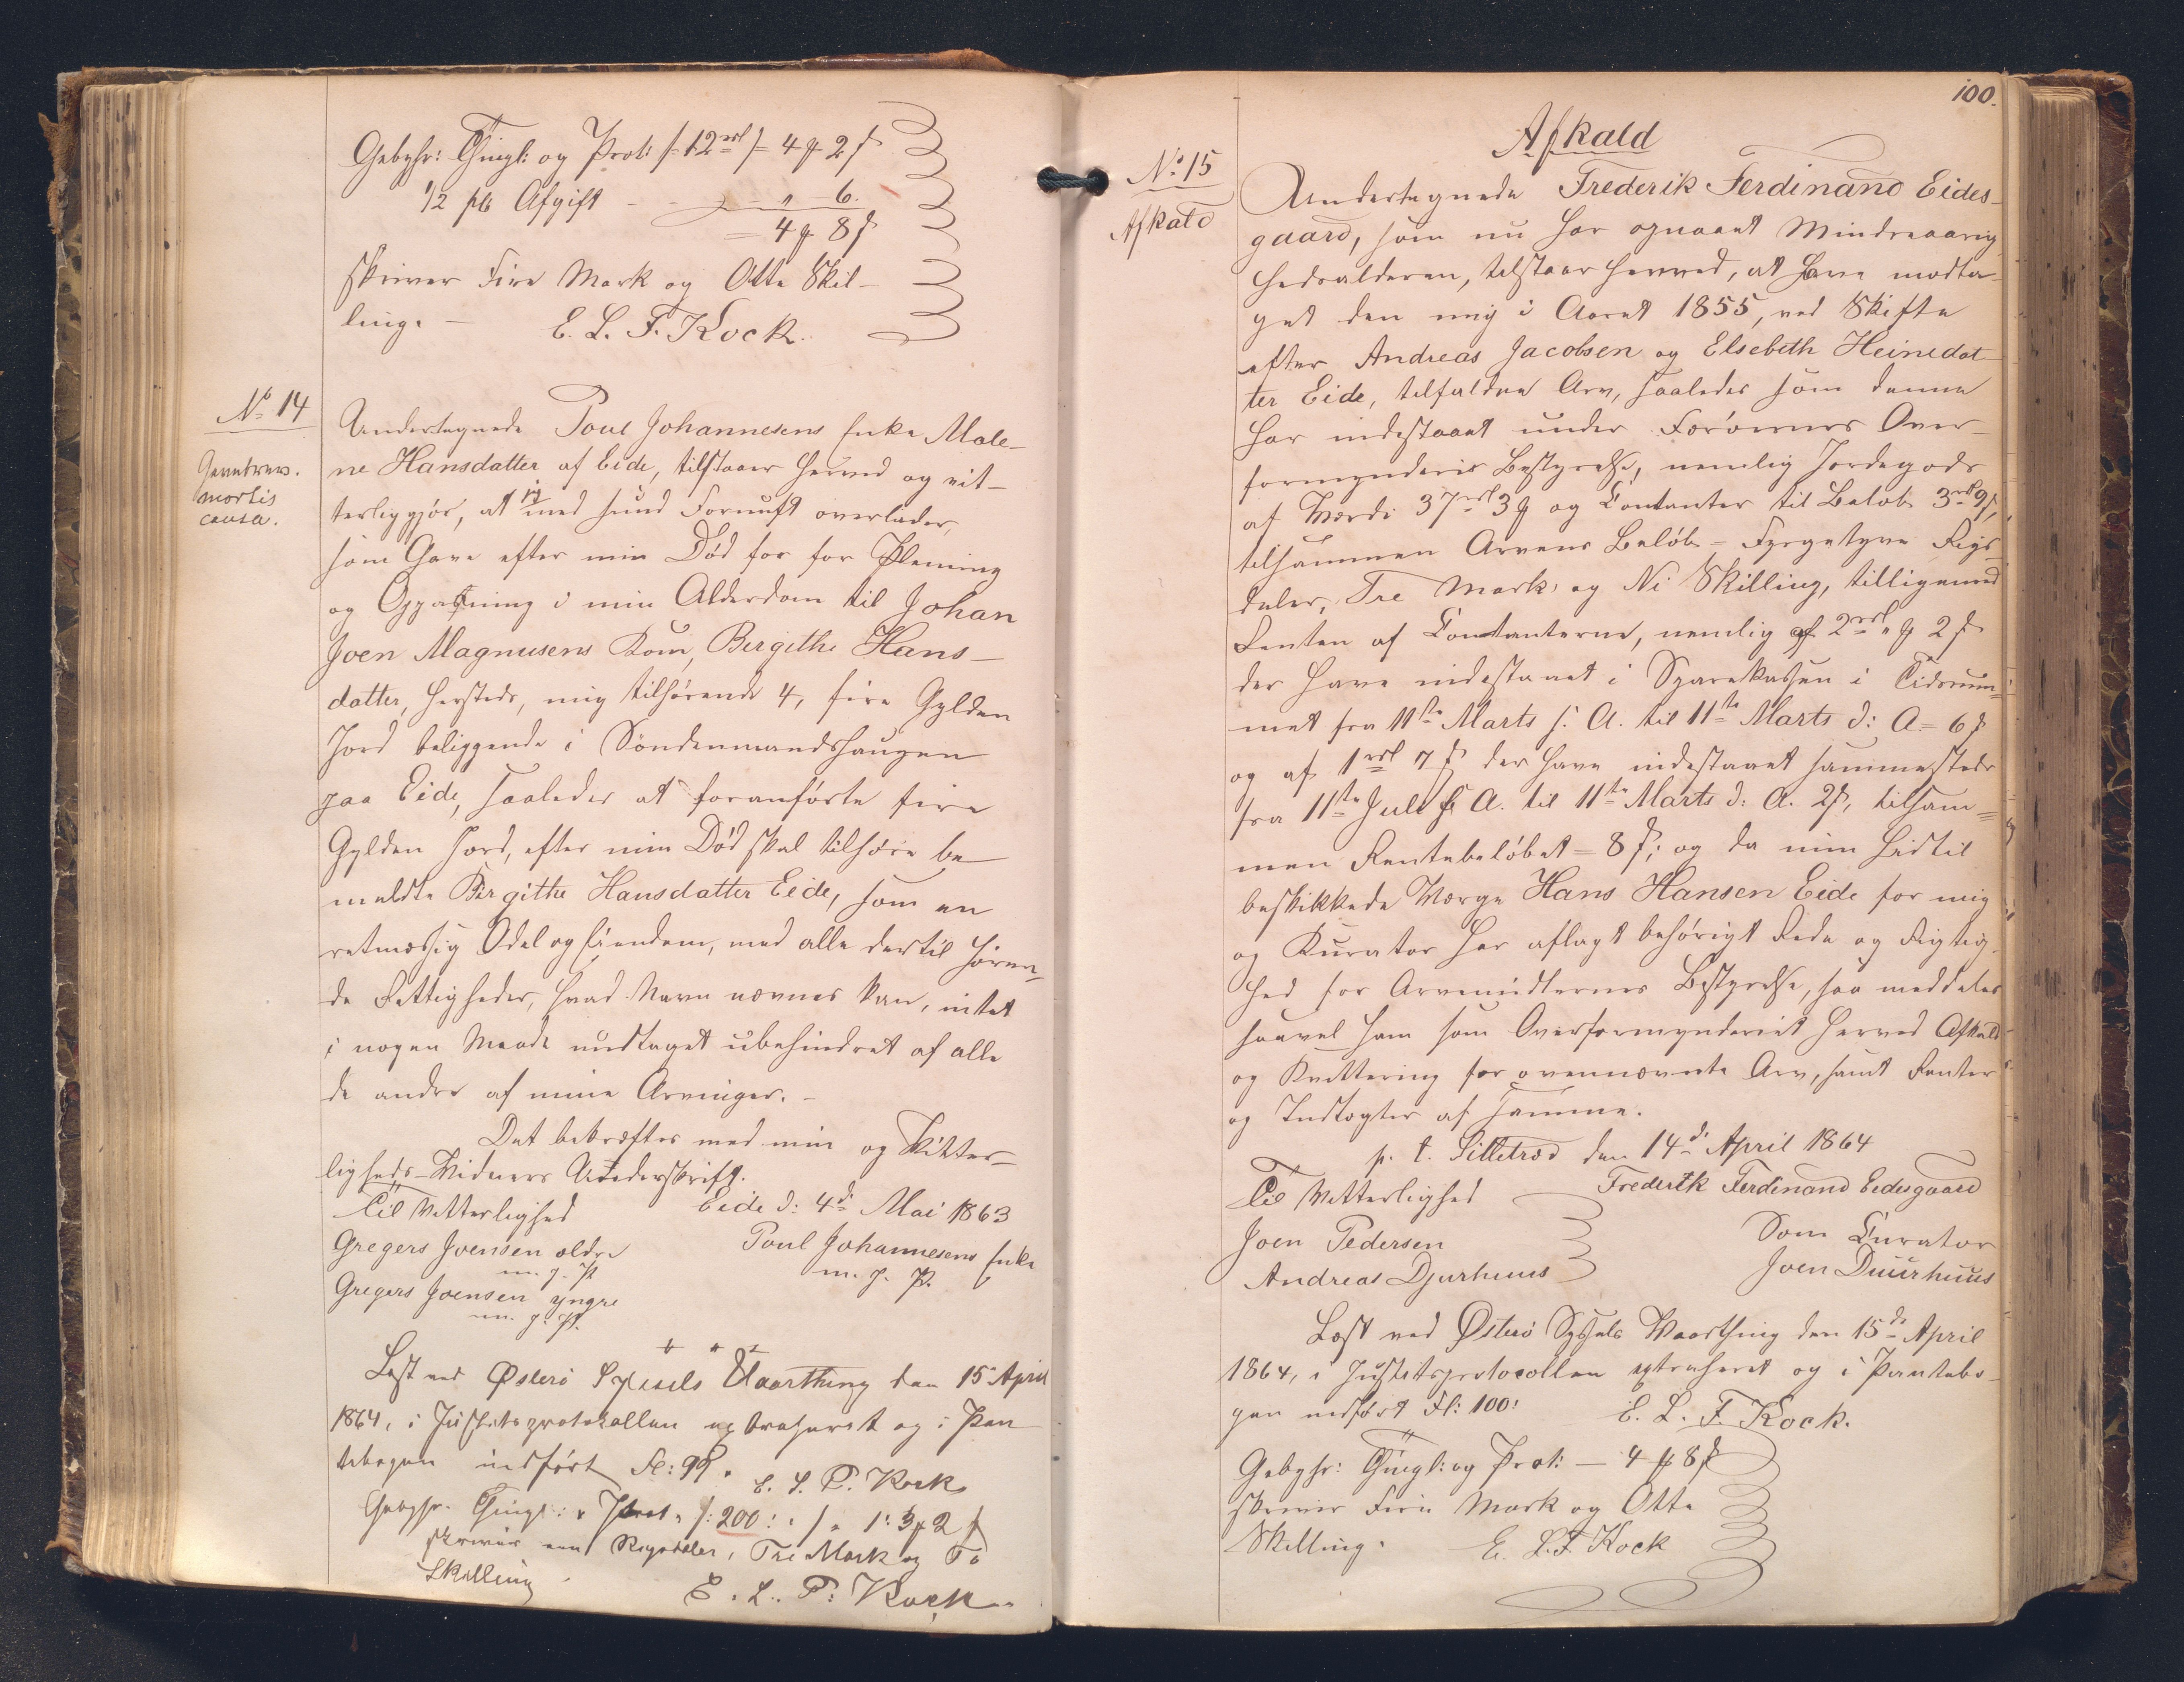 Gebyhr: Thingl: og Prot: /: 12 rdl /= 4 ₰ 2 ß
1/2 pCt Afgift - - - " - 6.
= 4 ₰ 8 ß
skriver Fire Mark og Otte Skil-
ling. - E. L. F. Kock.
No 14
Gavebrev.
mortis
causa.
Undertegnede Poul Johannesens Enke Male-
ne Hansdatter af Eide, tilstaaer herved og vit-
terliggjør, at jeg med sund Fornuft overlader,
som Gave efter min Død for for Pleining
og Oppasning i min Alderdom til Johan
Joen Magnusens Kone, Birgithe Hans-
datter, hersteds, mig tilhørende 4, fire Gylden
Jord beliggende i Søndenmandshaugen
paa Eide, saaledes at foranførte fire
Gylden Jord, efter min Død skal tilhøre be-
meldte Birgithe Hansdatter Eide, som en
retmæssig Odel og Eiendom, med alle dertil høren-
de Rettigheder, hvad Navn nævnes kan, intet
i nogen Maade undtaget ubehindret af alle
de andre af mine Arvinger. -
Det bekræftes med min og Vitter-
ligheds-Vidners Underskrift.
Eide d: 4de Mai 1863
Til Vitterlighed
Poul Johannesens Enke
m. f. P.
Gregers Joensen ældre
m. f. P.
Gregers Joensen yngre
m. f. P.
Læst ved Østerø Syssels Vaarthing den 15 April
1864, i Justitsprotokollen extraheret og i Pan-
tebogen indført Fl: 99. E. L. F. Kock
Gebyhr. Thingl: & Prot. /: 200 : / " 1: 3 ₰ 2 ß
skriver een Rigsdaler, Tre Mark og To
Skilling.
E. L. F. Kock
100.
No 15
Afkald
Afkald
Undertegnede Frederik Ferdinand Eides-
gaard, som nu har opnaaet Mindreaarig-
hedsalderen, tilstaar herved, at have modta-
get den mig i Aaret 1855, ved Skifte
efter Andreas Jacobsen og Elsebeth Heinedat-
ter Eide, tilfaldne Arv, saaledes som denne
har indestaaet under Færøernes Over-
formynderis Bestyrelse, nemlig Jordegods
af Værdi 37 rdl 3 ₰ og Contanter til Beløb 3 rdl 9 ß,
tilsammen Arvens Beløb = Fyrgetyve Rigs-
daler, Tre Mark og Ni Skilling, tilligemed
Renten af Contanterne, nemlig af 2 rdl " ₰ 2 ß
der have indestaaet i Sparekassen i Tidsrum-
met fra 11te Marts f: A. til 11te Marts d: A = 6 ß
og af 1 rdl 7 ß der have indestaaet sammesteds
fra 11te Juli f A. til 11te Marts d: A. 2 ß, tilsam-
men Rentebeløbet = 8 ß; og da min hidtil
beskikkede Værge Hans Hansen Eide for mig
og Kurator har aflagt behørigt Rede og Rigtig-
hed for Arvemidlernes Bestyrelse, saa meddeles
saavel ham som Overformynderiet herved Afkald
og Kvittering for ovennævnte Arv, samt Renter
og Indtægter af samme.
p. t. Selletræd den 14de April 1864
Til Vitterlighed
Frederik Ferdinand Eidesgaard
Joen Pedersen
Som Curator
Andreas Djurhuus
Joen Duurhuus
Læst ved Østerø Syssels Vaarthing den 15de April
1864, i Justitsprotocollen extraheret og i Pantebo-
gen indført Fl: 100: E. L. F. Kock.
Gebyhr: Thingl: og Prot: - 4 ₰ 8 ß
skriver Fire Mark og Otte
Skilling. E. L. F. Kock